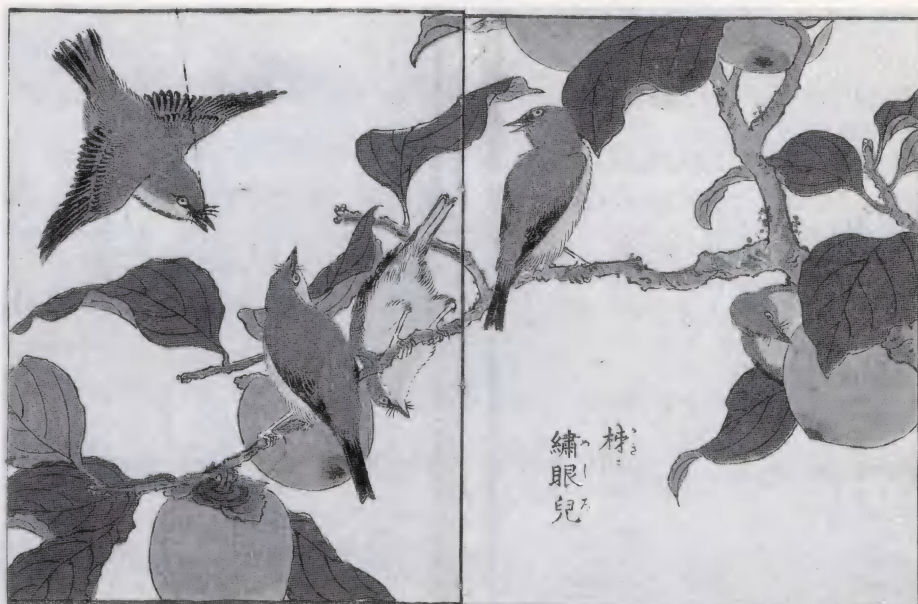 柹ニ
かき
繡眼兒
めしろ